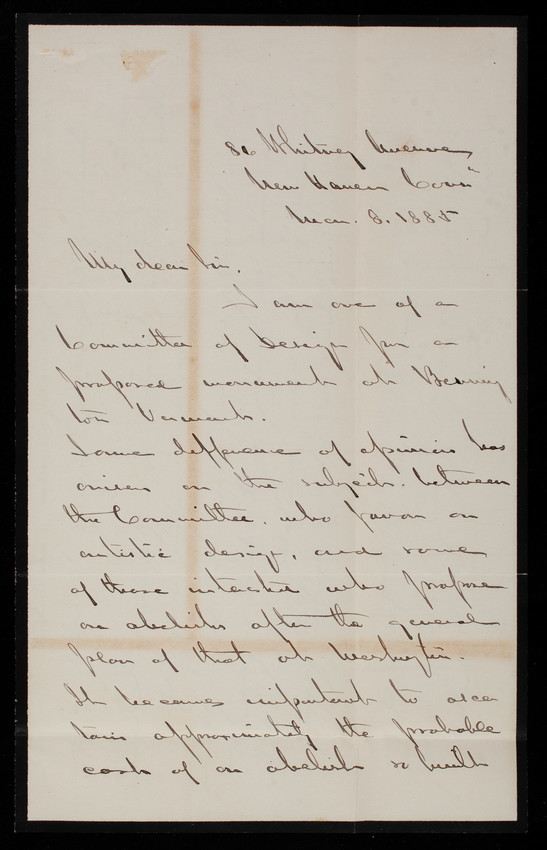 86 Whitney Avenue,
New Haven Conn
Mar. 8. 1885
My dear Sir,
I am one of a
Committee of Design for a
proposed monument at Benning
ton Vermont.
Some difference of opinion has
arisen on the subject. between
the Committee. who favor an
artistic design, and some
of those interested who propose
an obelisk after the general
plan of that at Washington.
It becomes important to ascer
tain approximately the probable
cost of an obelisk so built